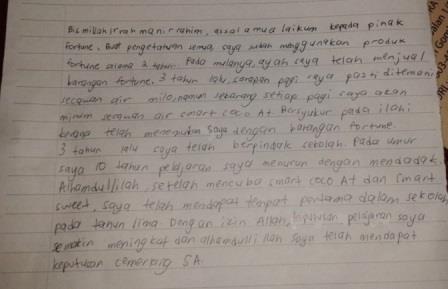 Bismillahirrahmanirrahim, assalamualaikum kepada pihak
fortune. Buat pengetahuan semua, saya sudah menggunakan produk
fortune selama 2 tahun. Pada mulanya, ayah saya telah menjual
barangan fortune. 3 tahun lalu, sarapan pagi saya pasti ditemani
secawan air milo, namun sekarang setiap pagi saya akan
minum secawan air smart coco At. Bersyukur pada ilahi
kerana telah menemukan saya dengan barangan fortune.
3 tahun lalu saya telah berpindah sekolah. Pada umur
saya 10 tahun pelajaran saya menurun dengan mendadak.
Alhamdullilah, setelah mencuba smart coco At dan smart
sweet, saya telah mendapat tempat pertama dalam sekolah
pada tahun lima. Dengan izin Allah, keputusan pelajaran saya
semakin meningkat dan alhamdulli llah saya telah mendapat
keputusan cemerlang 5A.